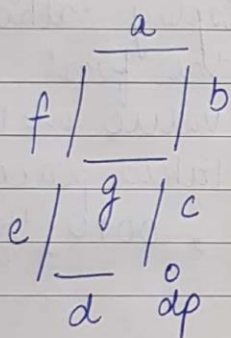 a
f b
g
e c
d dp